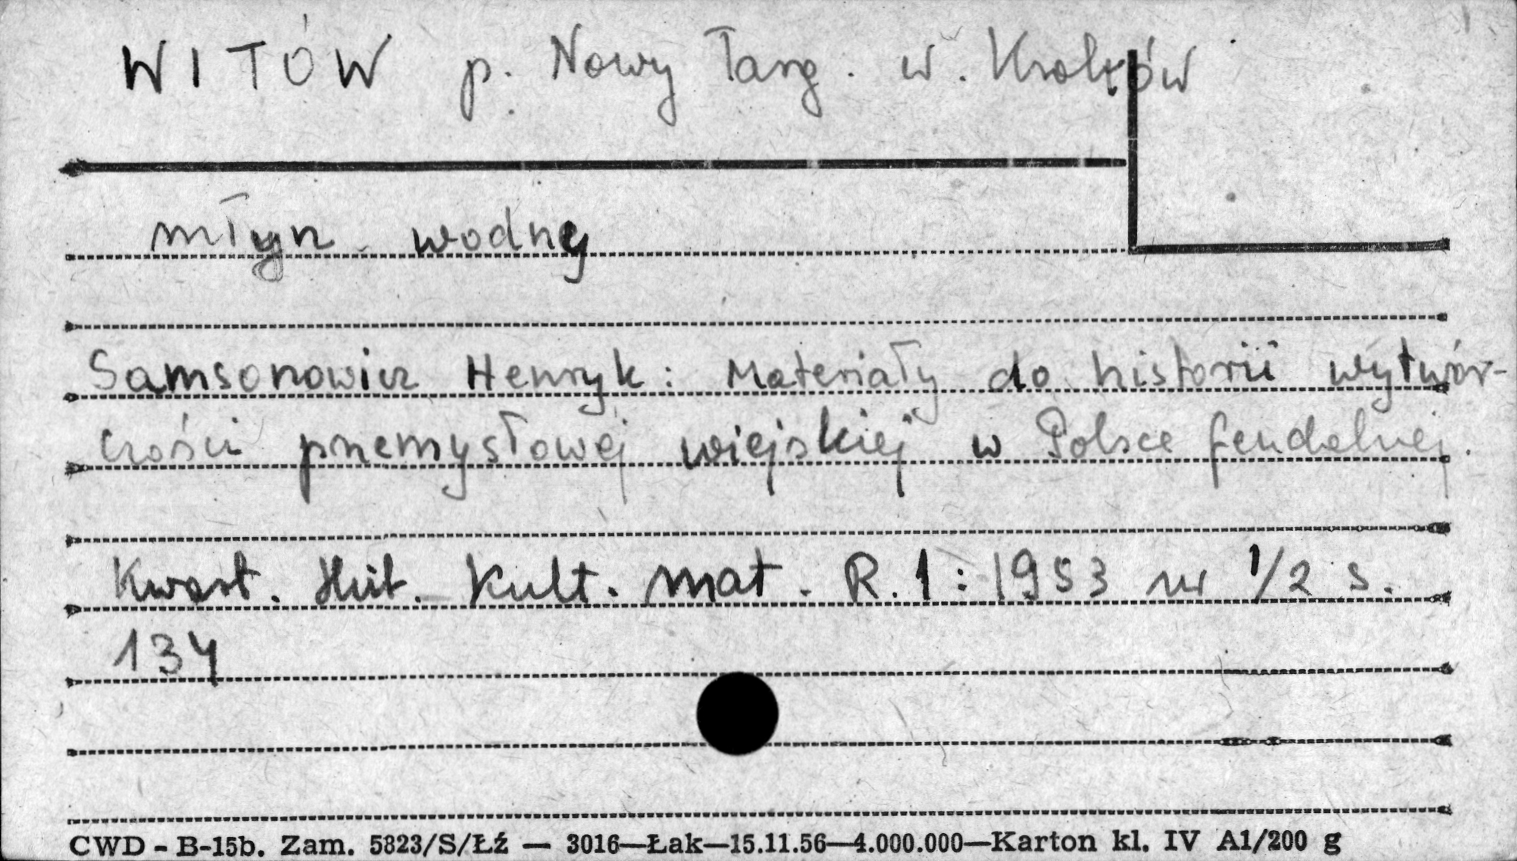 WITÓW p. Nowy Targ. w. Kraków
młyn wodny
Samsonowicz Henryk: Materiały do historii wytwór-
czości przemysłowej wiejskiej w Polsce feudalnej.
Kwart. Hist. Kult. mat. R. 1: 1953 nr 1/2 s.
134
CWD - B-15b. Zam. 5823/S/Łź — 3016—Łak—15.11.56—4.000.000—Karton kl. IV A1/200 g